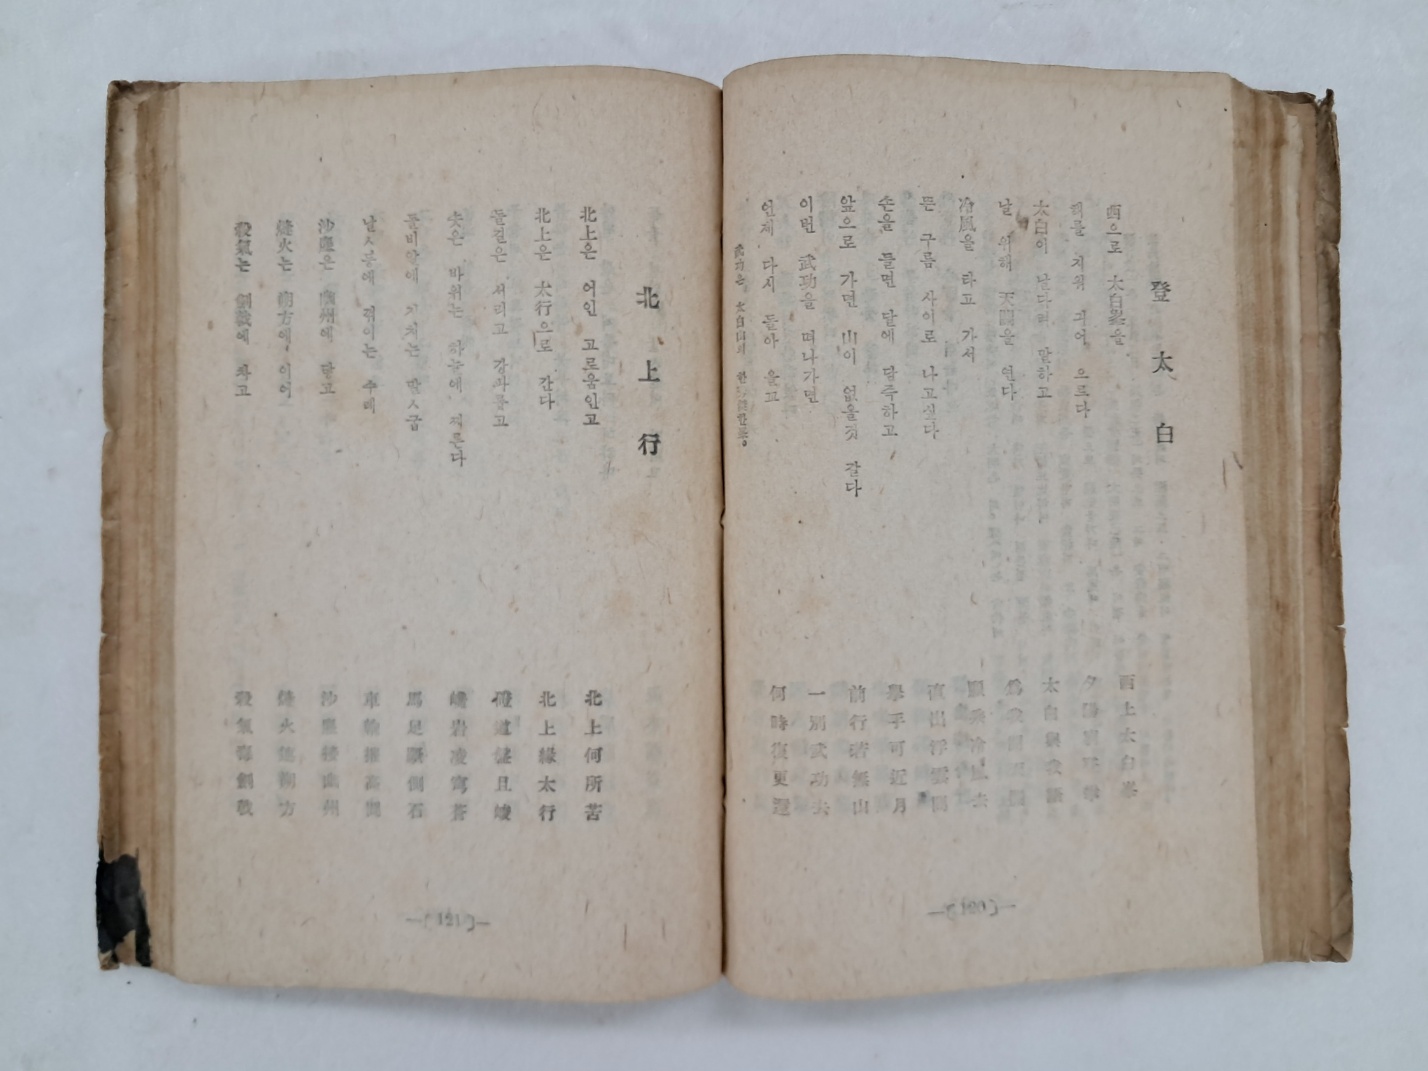 登太白
西으로 太白峯을
해를 지워 긔어 으르다
太白이 날다려 말하고
날 위해 天關을 연다
冷風을 타고 가서
뜬 구름 사이로 나고싶다
손을 들면 달에 당즉하고
앞으로 가면 山이 없을것 갈다
이번 武功을 떠나가면
언제 다시 돌아 올고
武功은 太白山의
西上太白峯
夕陽窮登攀
太白與我語
爲我開天關
願乘冷風去
直出浮雲間
擧手可近月
前行若無山
一別武功去
何時復更還
—(120)—
北上行
北上은 어인 고로움인고
北上은 太行으로 간다
돌길은 서리고 강파롭고
솟은 바위는 하눌에 찌른다
돌비알에 거치는 말ㅅ굽
날ㅅ등에 꺾이는 수레
沙塵은 幽州에 닿고
烽火는 朔方에 이어
殺氣는 劍戟에 차고
北上何所苦
北上緣太行
磴道盤且峻
巉岩凌穹蒼
馬足蹶側石
車輪摧高岡
沙塵接幽州
烽火連朔方
殺氣毒劍戟
—(121)—